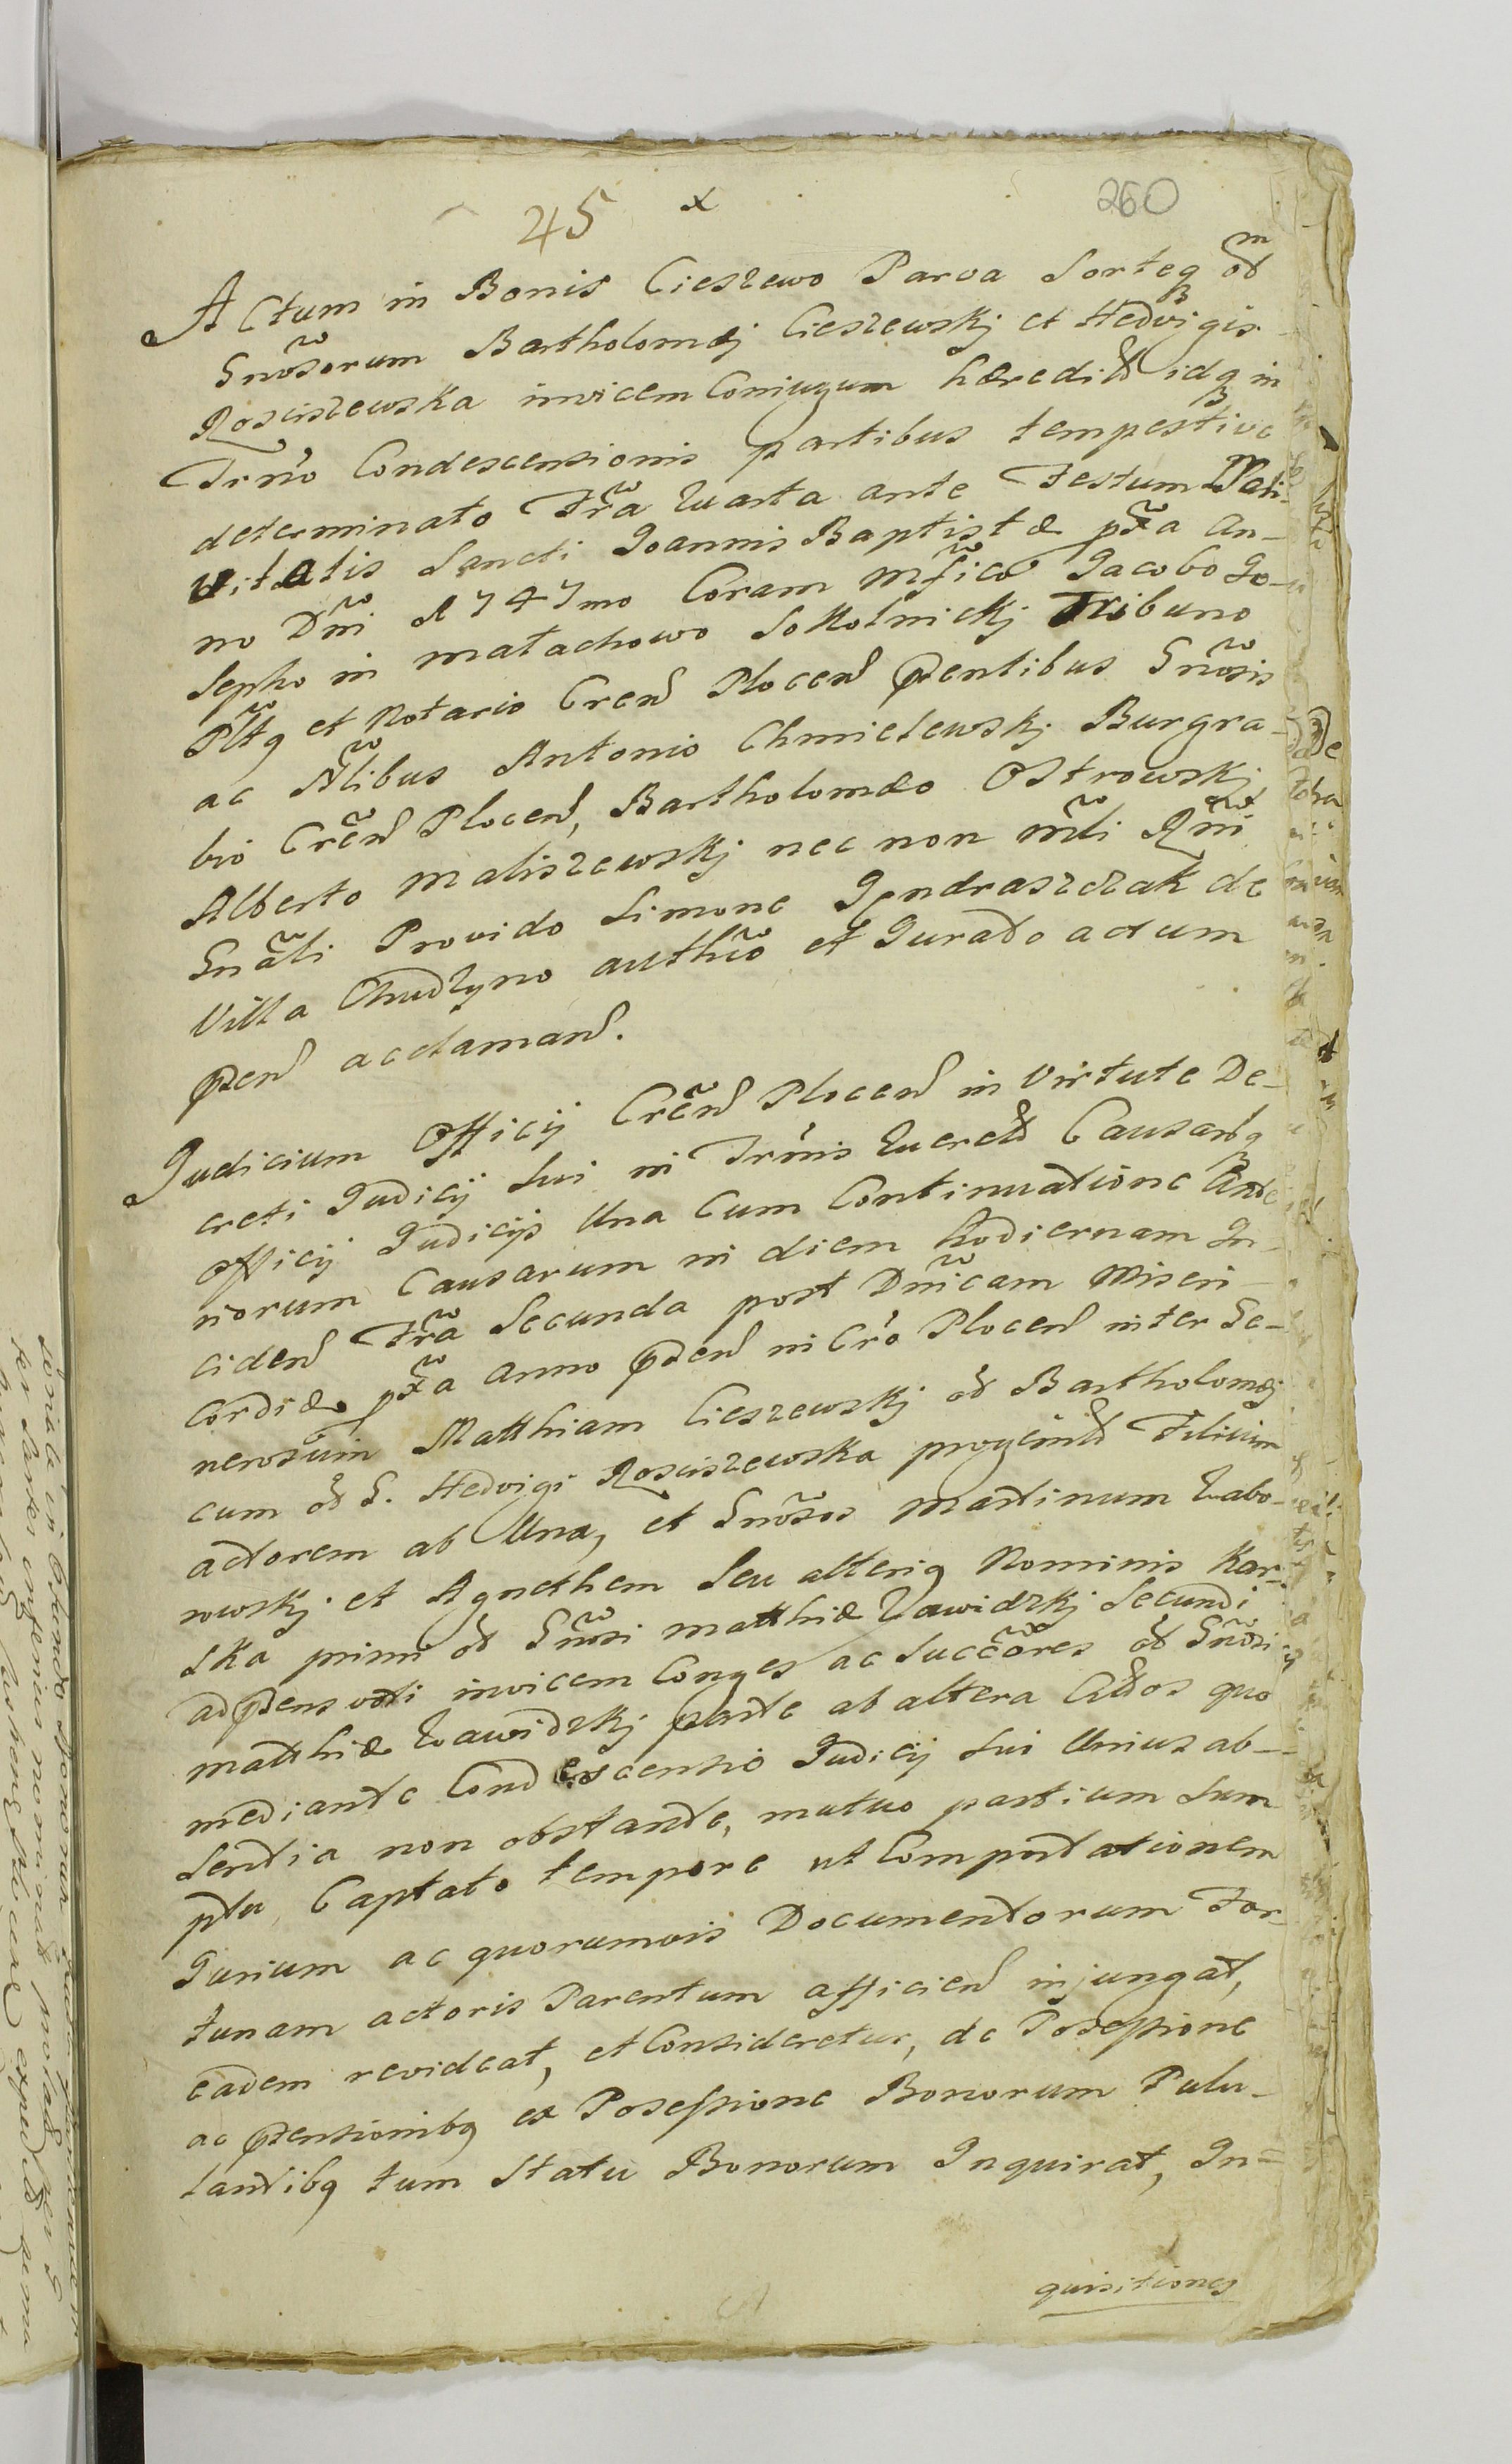 45 x 260
Actum in Bonis Cieszewo Parva Sorteq olim
Gnosorum Bartholomæj Cieszewskj et Hedvigis
Rosciszewska invicem Coniugum hæredit idq in
Trno Condescensionis partibus tempestive
determinato Fra Quarta ante Festum Nati-
vitatis Sancti Joannis Baptistæ pxa An-
no Dni 1747mo Coram Mfico Jacobo Jo-
sepho in Małachowo Sokolnickj Tribuno
Pltq et Notario Cren Plocen pntibus Gnosis
ac Nlibus Antonio Chmielewskj Burgra-
bio Cren Plocen, Bartholomæo Ostrowskj
Alberto Maliszewskj nec non Mli Rni
Gnali Provido Simone Jendraszczak de
Villa Chudzyno autho et Jurato actum
pnn acclaman.
Judicium Officij Cren Plocen in Virtute De-
creti Judicij Sui in Trnis Querel Causarq
Officij Judicijs Una Cum Continuatione Ante
riorum Causarum in diem hodiernam In
ciden Fra Secunda post Dnicam Miseri-
cordiæ pxa anno pnn in Cro Plocen inter Ge-
nerosum Matthiam Cieszewskj ol Bartholomæj
cum ol G. Hedvigi Rosciszewska progenit Filium
actorem ab Una, et Gnosos Martinum Zabo-
rowskj et Agnethem Seu alteriq Nominis Kar-
ska primi ol Gnosi Matthiæ Zawidzkj Secundi
ad pnns voti invicem Conges ac Succores ol Gnosi
Matthiæ Zawidzkj parte ab altera Citos quo
mediante Condescensio Judicij Sui Unius ab-
sentia non obstante, mutuo partium Sum
ptu, Captato tempore ut Comportationem
Jurium ac quorumvis Documentorum For-
tunam actoris Parentum afficien injungat,
eadem revideat, et Consideretur, de Possessione
ac ptensionibq ex Possessione Bonorum Pulu-
lantibq tum Statu Bonorum Inquirat, In=
quisitiones